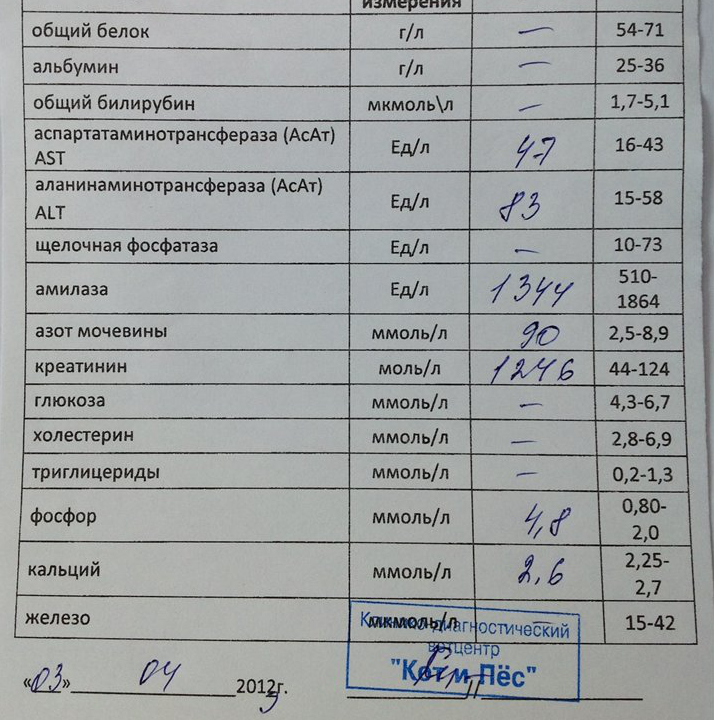 измерения
общий белок г/л — 54-71
альбумин г/л — 25-36
общий билирубин мкмоль\л — 1,7-5,1
аспартатаминотрансфераза (АсАт)
AST Ед/л 47 16-43
аланинаминотрансфераза (АсАт)
ALT Ед/л 83 15-58
щелочная фосфатаза Ед/л — 10-73
амилаза Ед/л 1344 510-
1864
азот мочевины ммоль/л 90 2,5-8,9
креатинин моль/л 1246 44-124
глюкоза ммоль/л — 4,3-6,7
холестерин ммоль/л — 2,8-6,9
триглицериды ммоль/л — 0,2-1,3
фосфор ммоль/л 4,8 0,80-
2,0
кальций ммоль/л 2,6 2,25-
2,7
железо мкмоль/л — 15-42
Клинико-диагностический
ветцентр
"Кот и Пёс"
«03» 04 2013г.